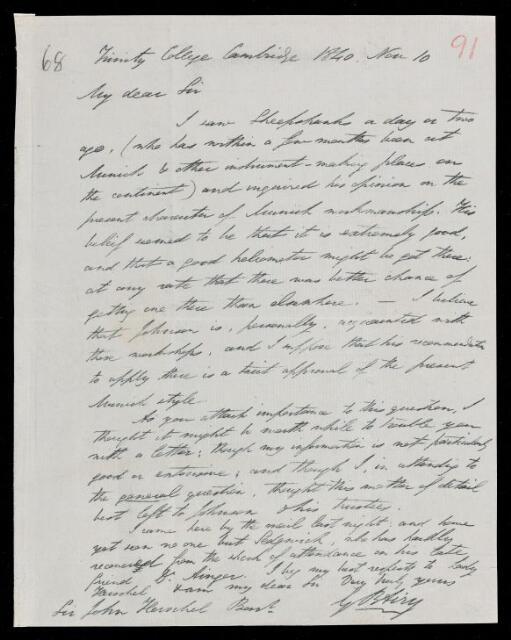 68
91
Trinity College Cambridge 1840. Nov 10
My dear Sir
I saw Sheepshanks a day or two
ago, (who has within a few months been at
Munich & other instrument-making places on
the continent) and inquired his opinion on the
present character of Munich workmanship. His
belief seemed to be that it is extremely good,
and that a good heliometer might be got there:
at any rate that there was better chance of
getting one there than elsewhere. — I believe
that Johnson is, personally, acquainted with
these workshops, and I suppose that his recommendation
to apply there is a tacit approval of the present
Munich style.
As you attach importance to this question, I
thought it might be worth while to trouble you
with a letter: though my information is not particularly
good or extensive; and though I, in attending to
the general question, thought this matter of detail
best left to Johnson & his trustees.
I came here by the mail last night, and have
yet seen no one but Sedgwick, who has hardly
recovered from the shock of attendance on his late
friend Dr. Ainger. I beg my best respects to Lady
Herschel & am my dear Sir Very truly yours
G B Airy
Sir John Herschel Bart.